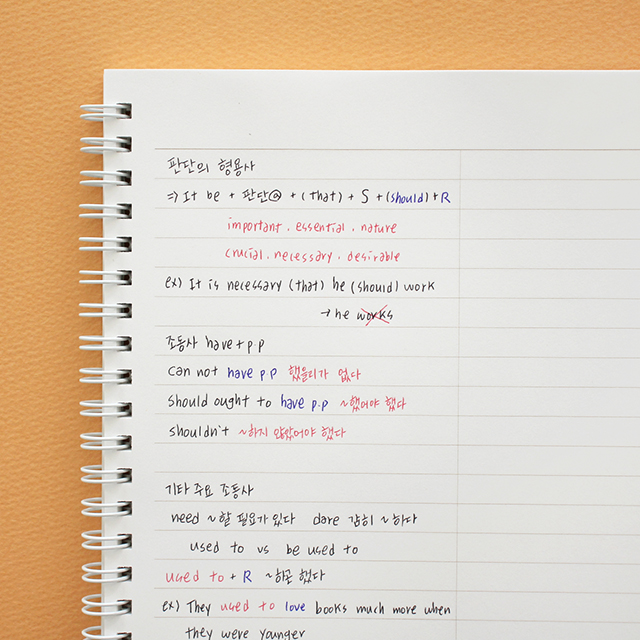 판단의 형용사
⇒ It be + 판단ⓐ + (that) + S + (should) + R
important. essential. nature
crucial. necessary. desirable
ex) It is necessary (that) he (should) work
→ he works
조동사 have + p.p
can not have p.p 했을리가 없다
should ought to have p.p ~했어야 했다
shouldn't ~하지 않았어야 했다
기타 주요 조동사
need ~할 필요가 있다 dare 감히 ~하다
used to vs be used to
used to + R ~하곤 했다
ex) They used to love books much more when
they were younger